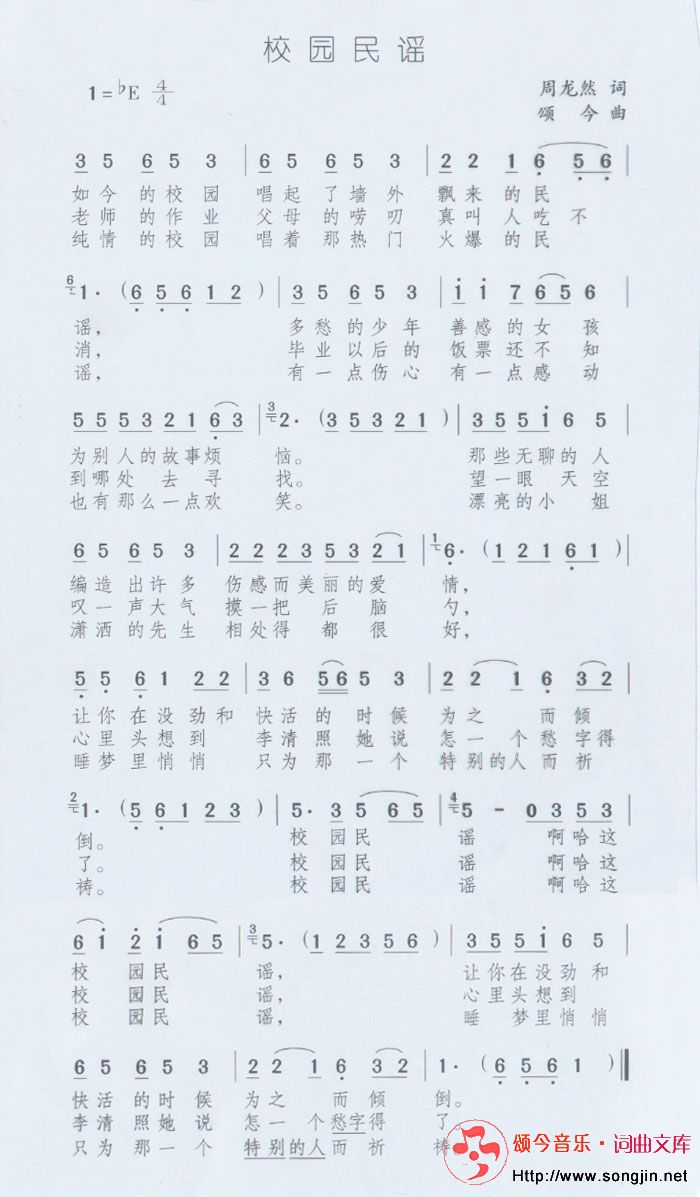 校园民谣
1=♭E 4/4
周龙然 词
颂 今 曲
3 5 6 5 3 | 6 5 6 5 3 | 2 2 1 6 5 6 |
如今的校园 唱起了墙外 飘来的民
老师的作业 父母的唠叨 真叫人吃不
纯情的校园 唱着那热门 火爆的民
6 1· (6 5 6 1 2) | 3 5 6 5 3 | i i 7 6 5 6 |
谣, 多愁的少年 善感的女孩
消, 毕业以后的 饭票还不知
谣, 有一点伤心 有一点感动
5 5 5 3 2 1 6 3 | 3 2· (3 5 3 2 1) | 3 5 5 i 6 5 |
为别人的故事烦 恼。 那些无聊的人
到哪处去寻 找。 望一眼天空
也有那么一点欢 笑。 漂亮的小姐
6 5 6 5 3 | 2 2 2 3 5 3 2 1 | 1 6· (1 2 1 6 1) |
编造出许多 伤感而美丽的爱 情,
叹一声大气 摸一把后脑 勺,
潇洒的先生 相处得都很 好,
5 5 6 1 2 2 | 3 6 5 6 5 3 | 2 2 1 6 3 2 |
让你在没劲和 快活的时候 为之而倾
心里头想到 李清照她说 怎一个愁字得
睡梦里悄悄 只为那一个 特别的人而祈
2 1· (5 6 1 2 3) | 5· 3 5 6 5 | 4 5 - 0 3 5 3 |
倒。 校园民 谣 啊哈这
了。 校园民 谣 啊哈这
祷。 校园民 谣 啊哈这
6 i 2 i 6 5 | 3 5· (1 2 3 5 6) | 3 5 5 i 6 5 |
校园民 谣, 让你在没劲和
校园民 谣, 心里头想到
校园民 谣, 睡梦里悄悄
6 5 6 5 3 | 2 2 1 6 3 2 | 1· (6 5 6 1) ‖
快活的时候 为之而倾 倒。
李清照她说 怎一个愁字得 了。
只为那一个 特别的人而祈 祷
颂今音乐·词曲文库
Http://www.songjin.net